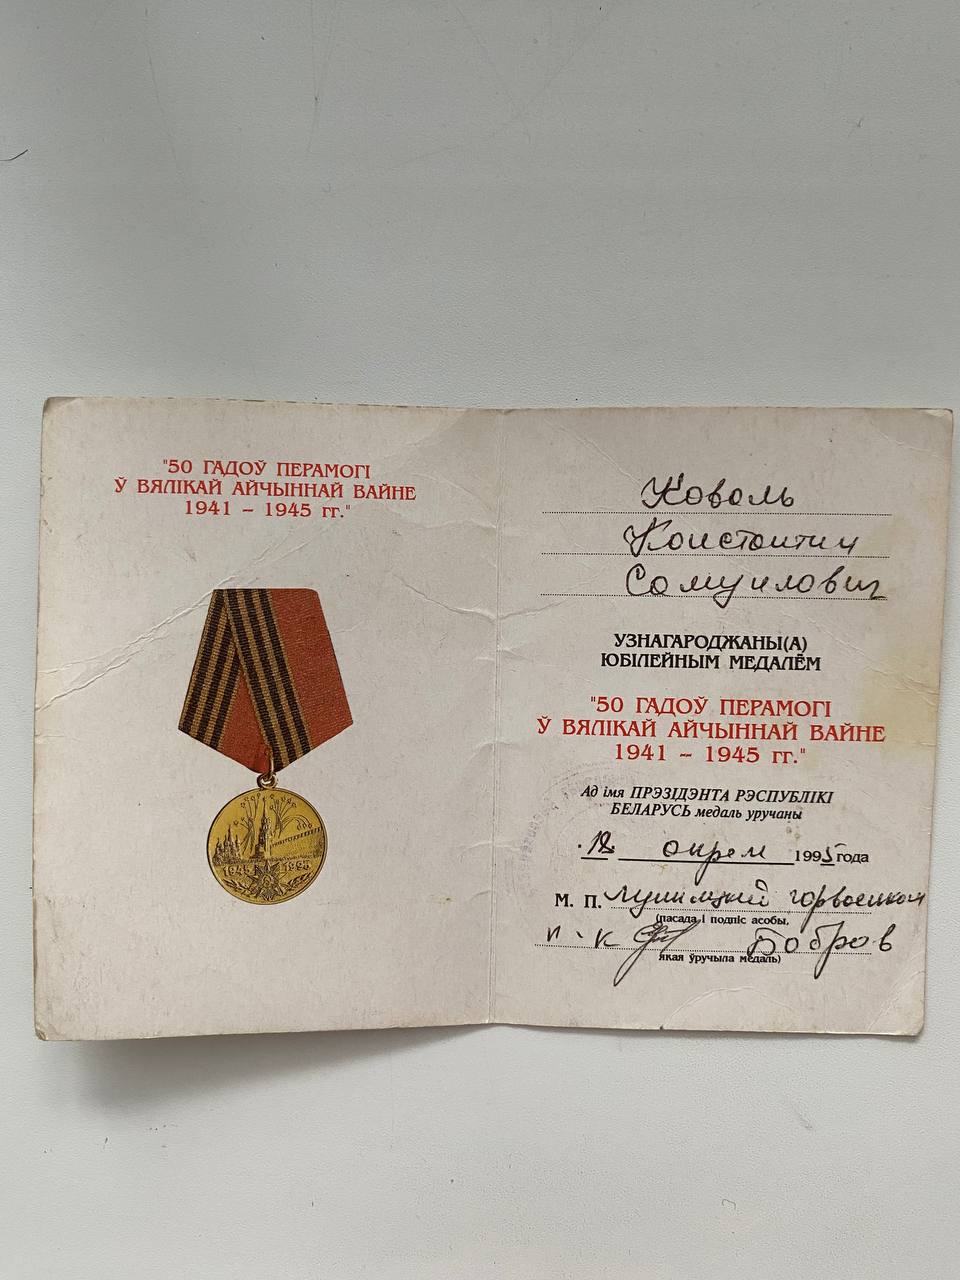 "50 ГАДОЎ ПЕРАМОГІ
Ў ВЯЛІКАЙ АЙЧЫННАЙ ВАЙНЕ
1941 – 1945 гг."
1945 1995
Коваль
Константин
Самуилович
УЗНАГАРОДЖАНЫ(А)
ЮБІЛЕЙНЫМ МЕДАЛЁМ
"50 ГАДОЎ ПЕРАМОГІ
Ў ВЯЛІКАЙ АЙЧЫННАЙ ВАЙНЕ
1941 – 1945 гг."
Ад імя ПРЭЗІДЭНТА РЭСПУБЛІКІ
БЕЛАРУСЬ медаль уручаны
18 апрел 1995 года
М. П. горвоенком
(пасада і подпіс асобы,
п-к Бобров
якая ўручыла медаль)